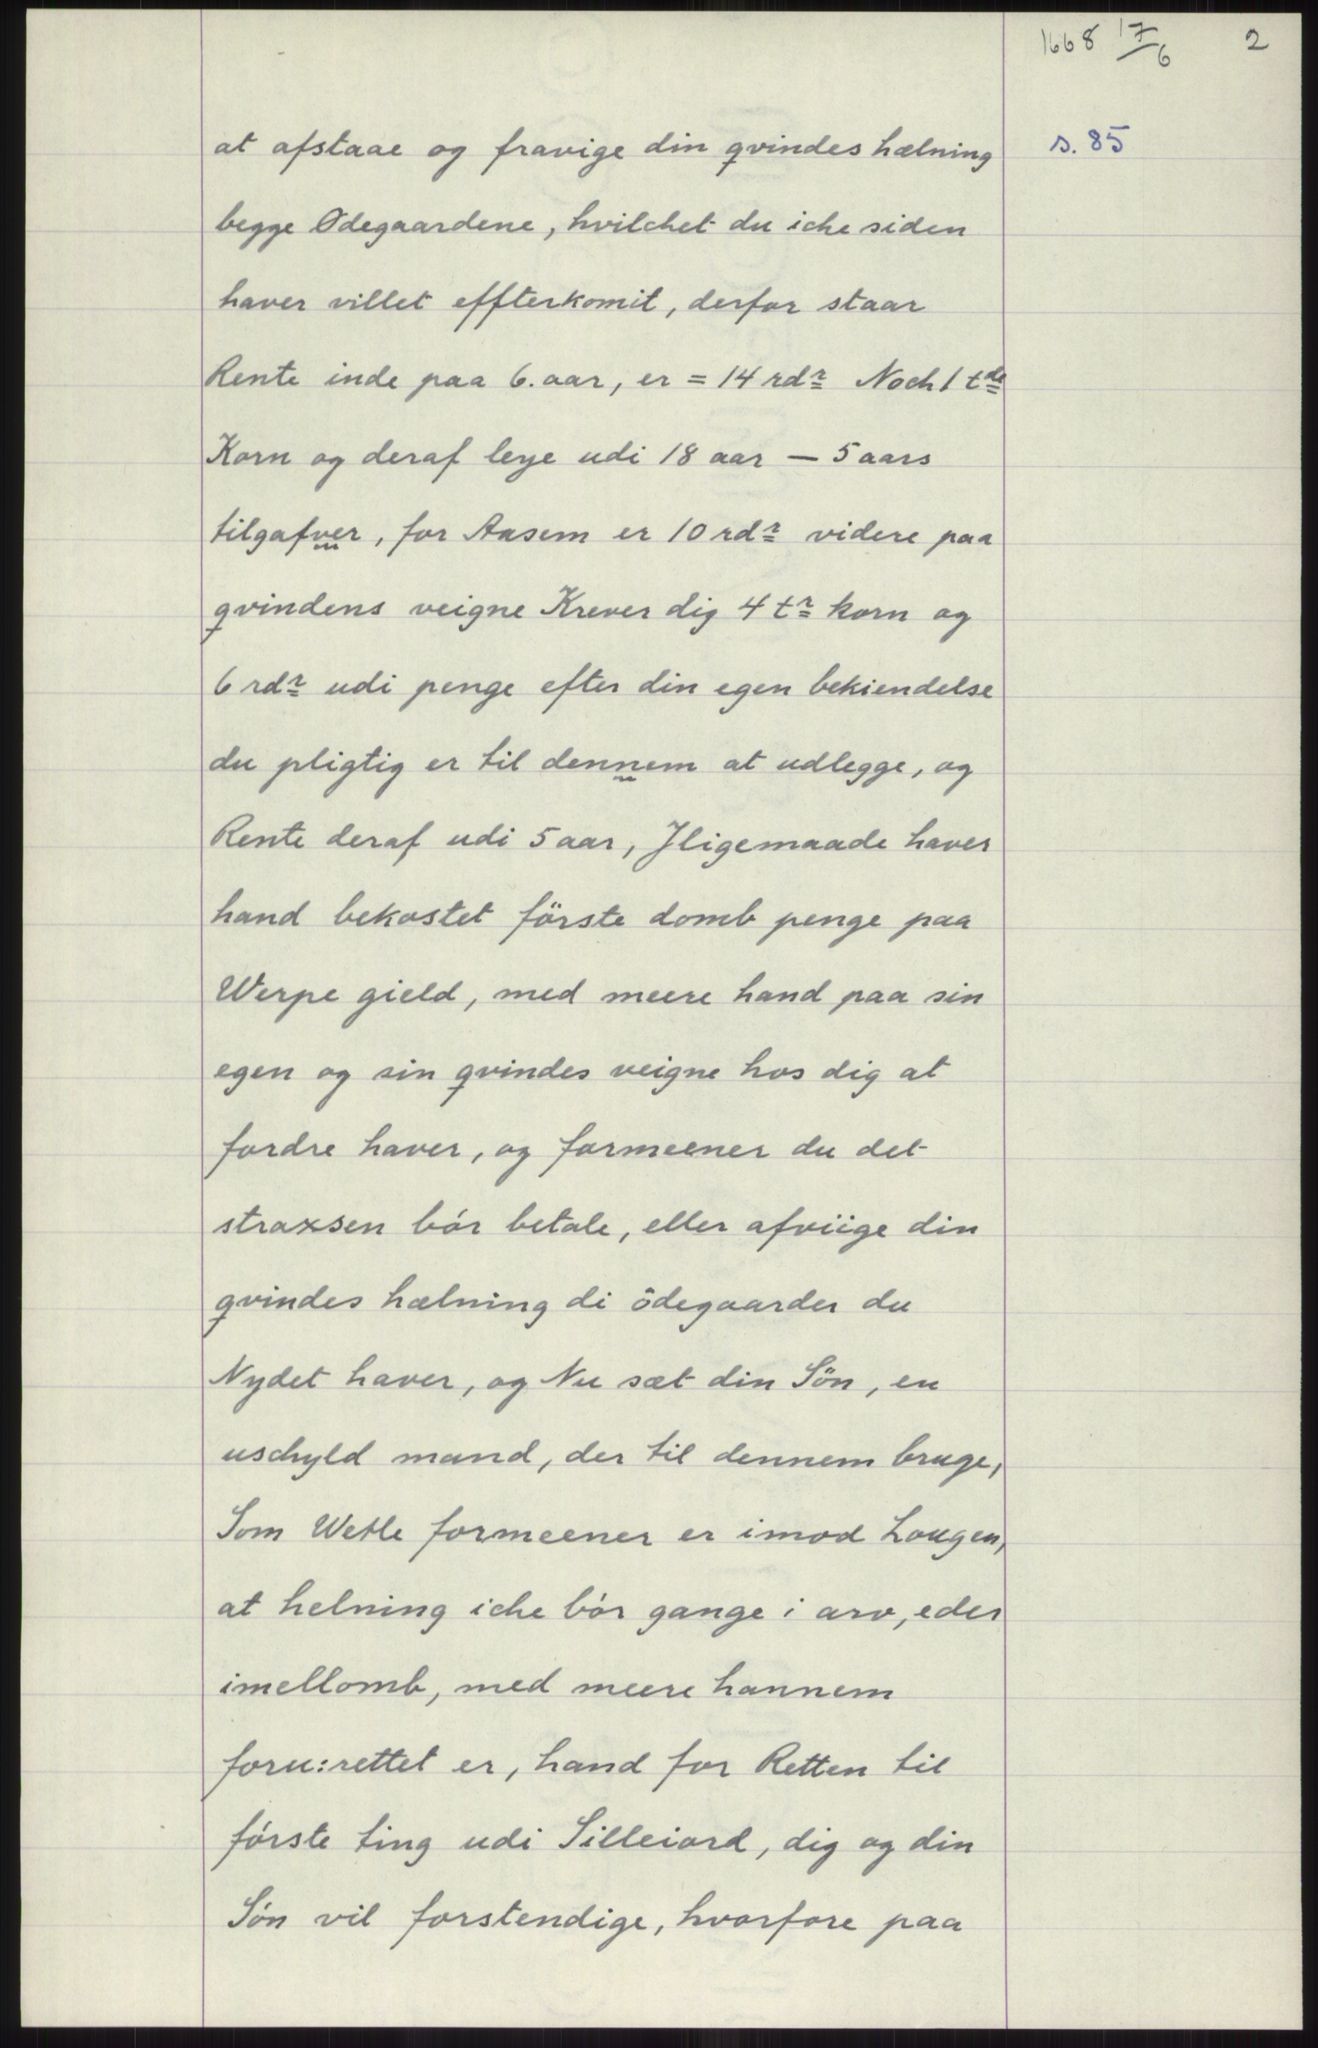 1668 17/6 2
s. 85
at afstaae og fravige din qvindes hælning
begge Ødegaardene, hvilchet du iche siden
haver villet effterkomit, derfor staar
Rente inde paa 6. aar, er = 14 rdr Noch 1 tde
Korn og deraf leye udi 18 aar — 5 aars
tilgafver, for Aasem er 10 rdr videre paa
qvindens veigne Krever dig 4 tr korn og
6 rdr udi penge efter din egen bekiendelse
du pligtig er til dennem at udlegge, og
Rente deraf udi 5 aar, Jligemaade haver
hand bekostet förste domb penge paa
Werpe gield, med meere hand paa sin
egen og sin qvindes veigne hos dig at
fordre haver, og formeener du det
straxsen bór betale, eller afviige din
qvindes hælning di ödegaarder du
Nydet haver, og Nu sæt din Sön, en
uschyld mand, der til dennem bruge,
Som Wetle formeener er imod Lougen,
at helning iche bór gange i arv, eder
imellomb, med meere hannem
foru:rettet er, hand for Retten til
fórste ting udi Silleiord, dig og din
Són vil forstendige, hvorfore paa